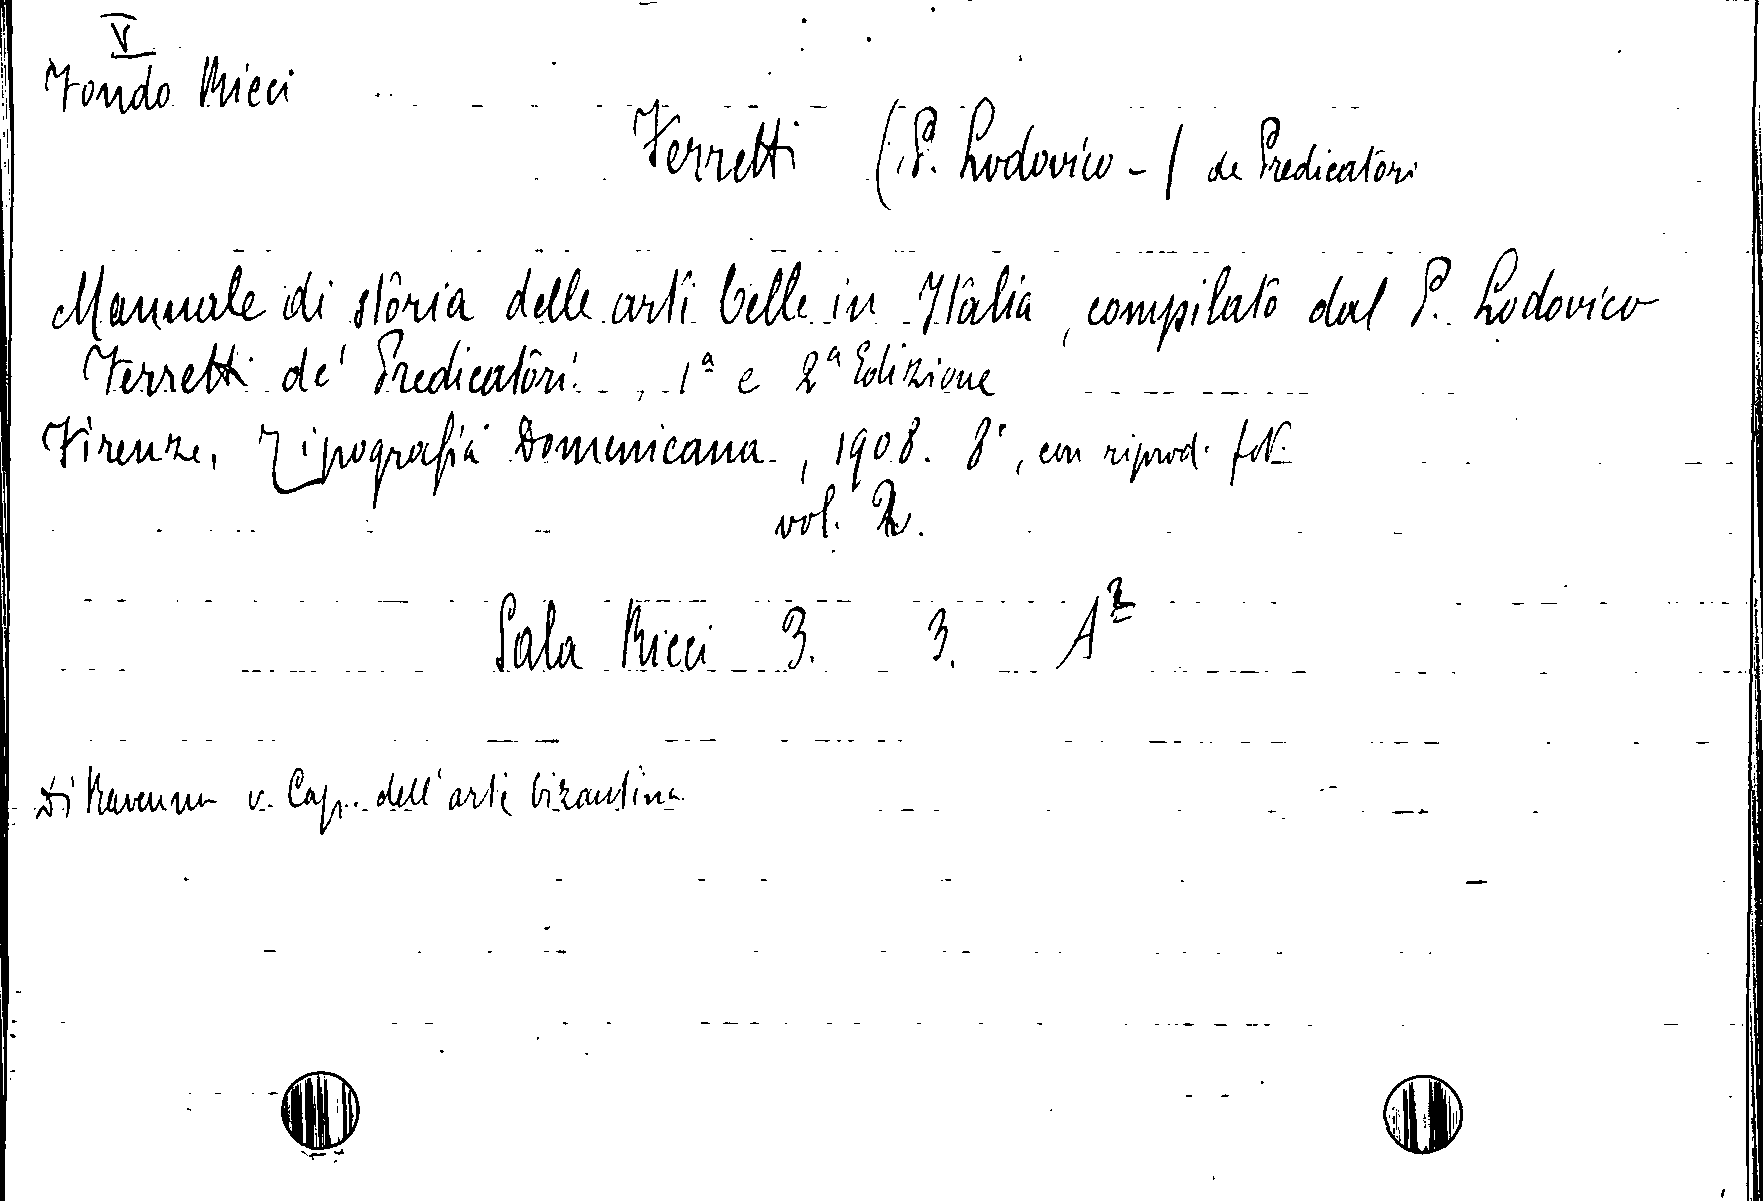 V
Fondo Ricci
Ferretti (P. Lodovico -) de Predicatori
Manuale di storia delle arti belle in Italia, compilato dal P. Lodovico
Ferretti de' Predicatori., 1ª e 2ª Edizione
Firenze, Tipografia Domenicana, 1908. 8°, con riprod. fot.
vol. 2.
Sala Ricci 3. 3. A²
Di Ravenna v. Cap. dell'arte bizantina